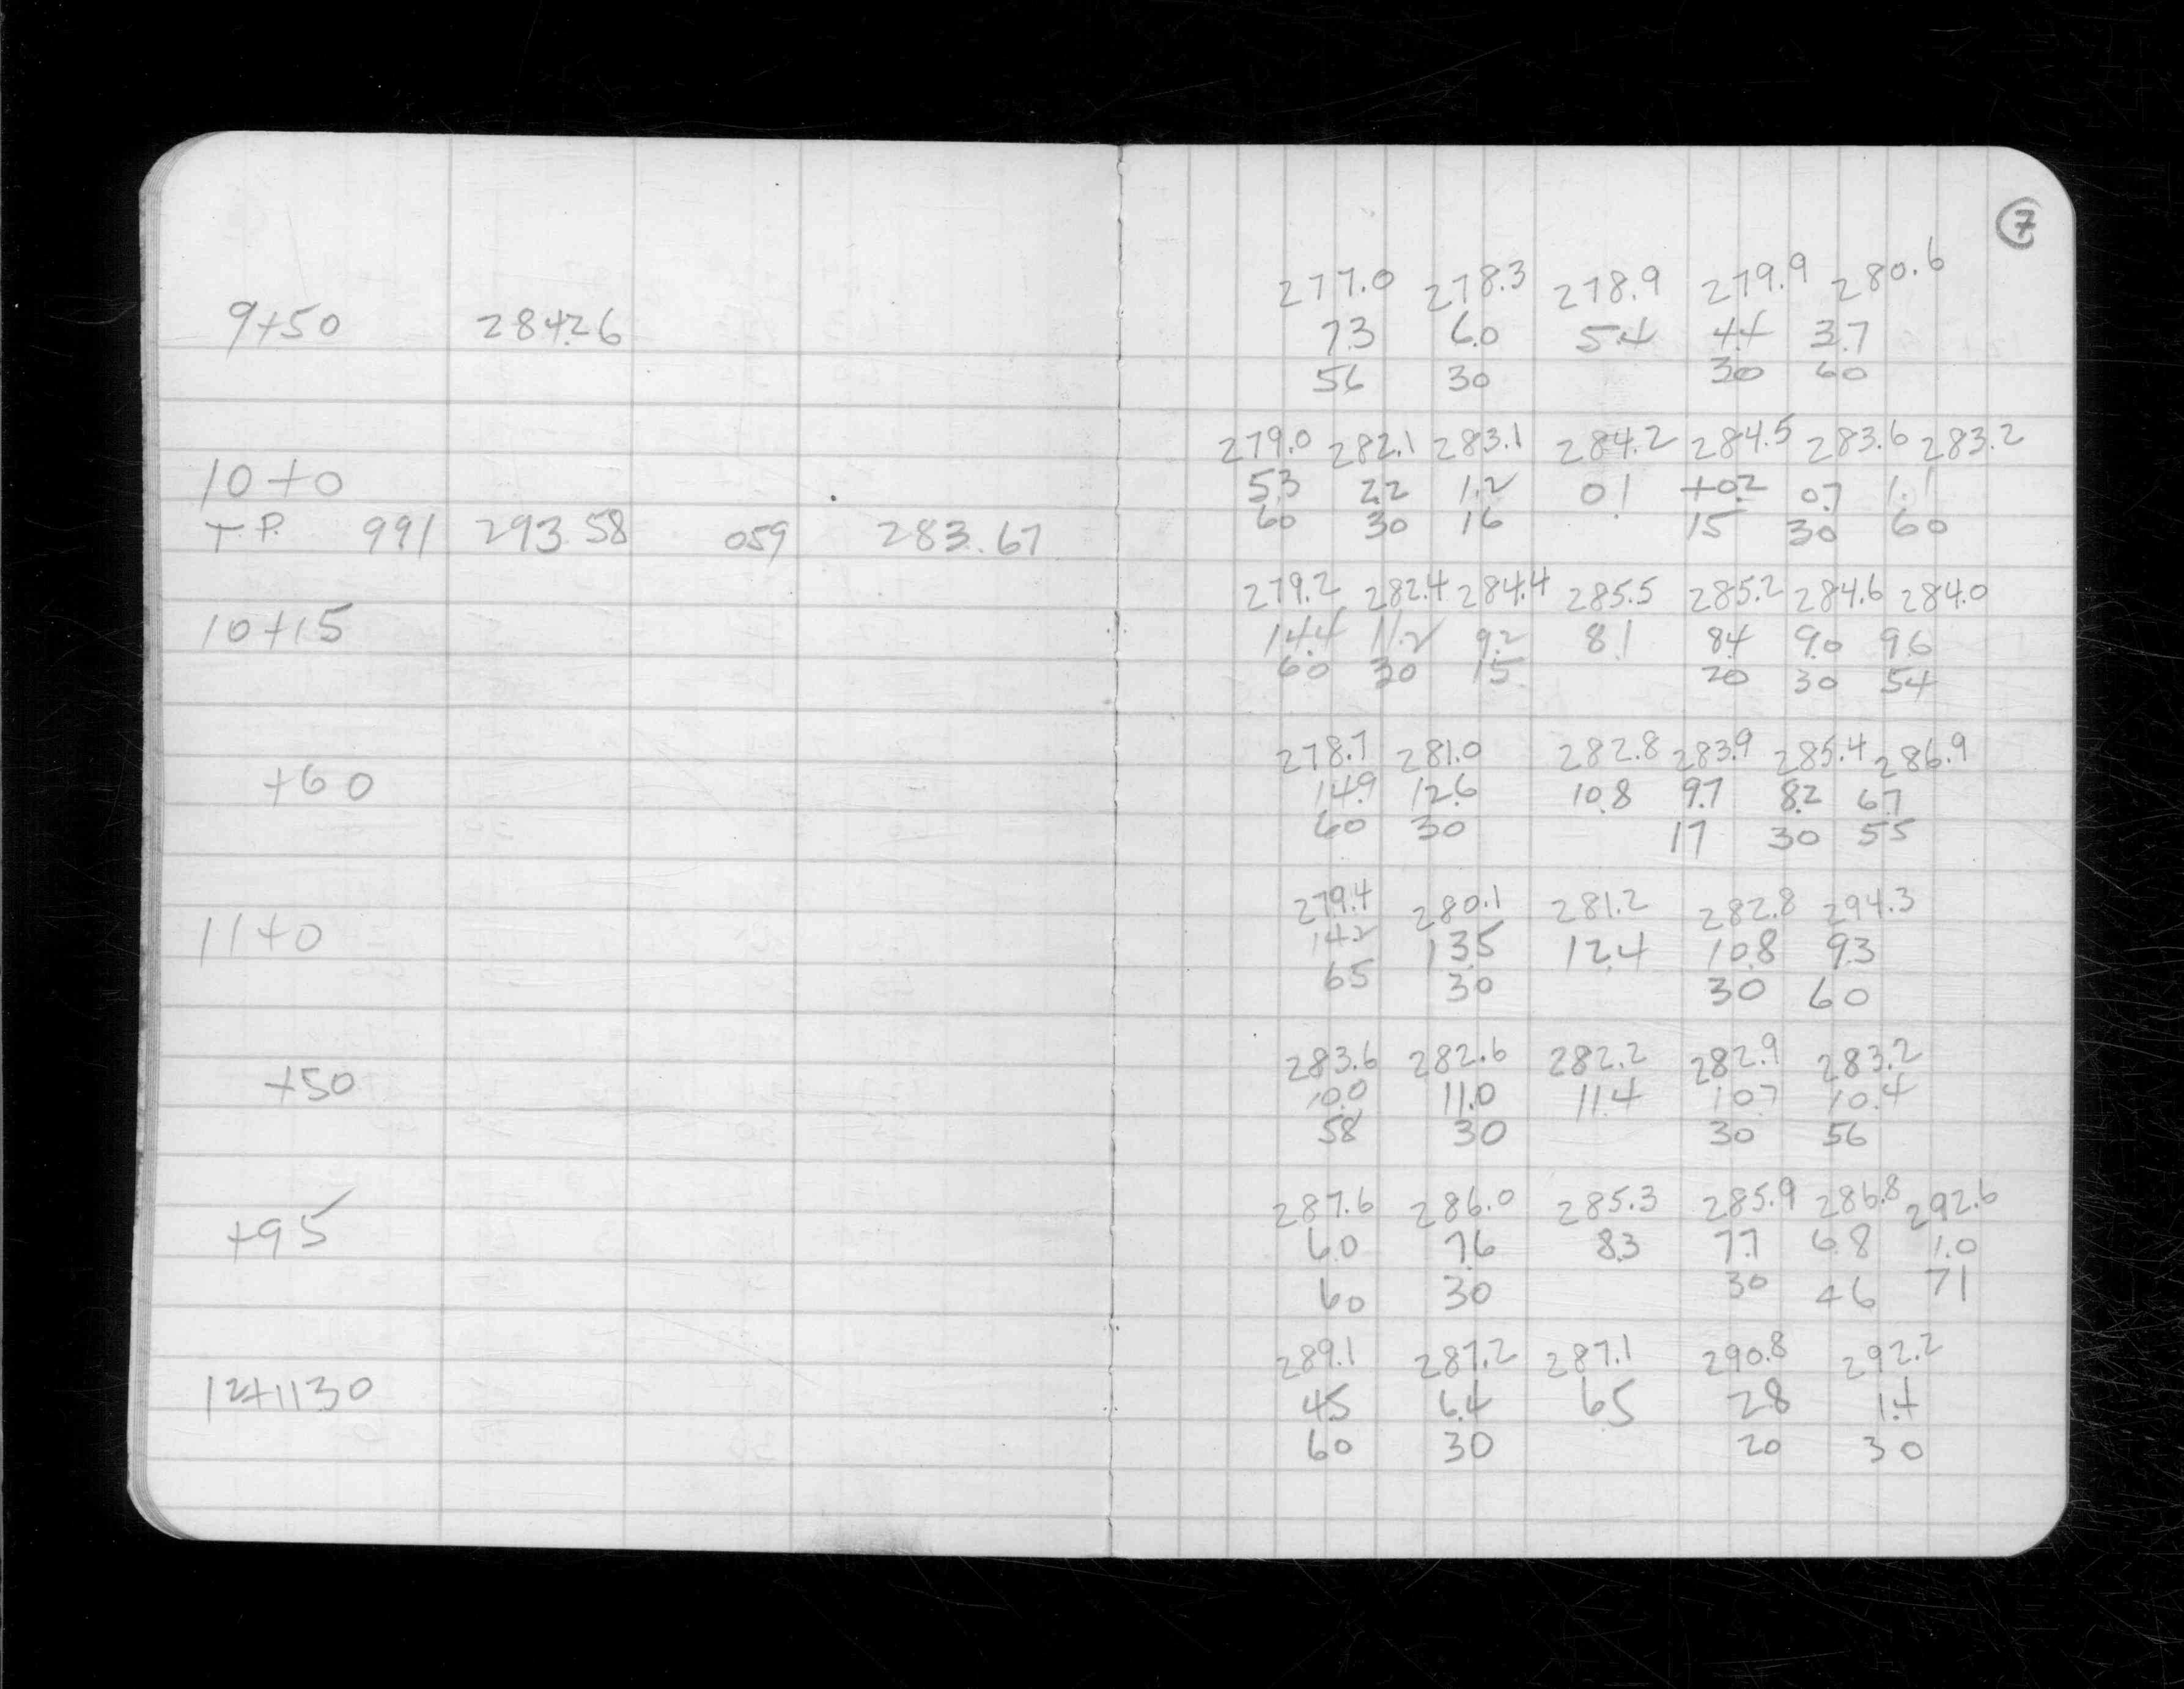 7
277.0 278.3 278.9 279.9 280.6
9+50 284.26 7.3 6.0 5.4 4.4 3.7
56 30 30 60
279.0 282.1 283.1 284.2 284.5 283.6 283.2
10+0 5.3 2.2 1.2 0.1 +0.2 0.7 1.1
T.P. 991 293.58 059 283.67 60 30 16 15 30 60
279.2 282.4 284.4 285.5 285.2 284.6 284.0
10+15 14.4 11.2 9.2 8.1 8.4 9.0 9.6
60 30 15 20 30 54
278.7 281.0 282.8 283.9 285.4 286.9
+60 14.9 12.6 10.8 9.7 8.2 6.7
60 30 17 30 55
279.4 280.1 281.2 282.8 294.3
11+0 14.2 13.5 12.4 10.8 9.3
65 30 30 60
283.6 282.6 282.2 282.9 283.2
+50 10.0 11.0 11.4 10.7 10.4
58 30 30 56
287.6 286.0 285.3 285.9 286.8 292.6
+95 6.0 7.6 8.3 7.7 6.8 1.0
60 30 30 46 71
289.1 287.2 287.1 290.8 292.2
4.5 6.4 6.5 2.8 1.4
60 30 20 30